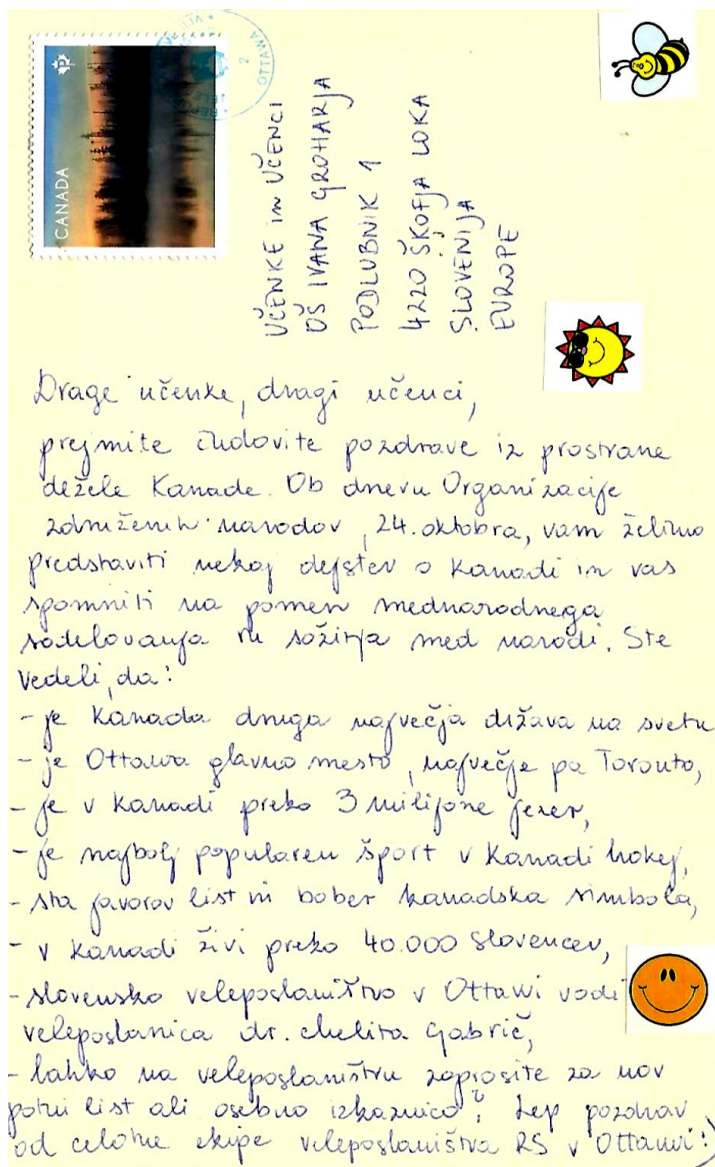 CANADA
OTTAWA
UČENKE in UČENCI
OŠ IVANA GROHARJA
PODLUBNIK 1
4220 ŠKOFJA LOKA
SLOVENIJA
EUROPE
Drage učenke, dragi učenci,
prejmite čudovite pozdrave iz prostrane
dežele Kanade. Ob dnevu Organizacije
združenih narodov, 24. oktobra, vam želimo
predstaviti nekaj dejstev o Kanadi in vas
spomniti na pomen mednarodnega
sodelovanja in sožitja med narodi. Ste
vedeli, da:
- je Kanada druga največja država na svetu
- je Ottawa glavno mesto, največje pa Toronto,
- je v Kanadi preko 3 milijone jezer,
- je najbolj popularen šport v Kanadi hokej,
- sta javorov list in bober kanadska simbola,
- v Kanadi živi preko 40.000 Slovencev,
- slovensko veleposlaništvo v Ottawi vodi
veleposlanica dr. Melita Gabrič,
- lahko na veleposlaništvu zaprosite za nov
potni list ali osebno izkaznico? Lep pozdrav
od celotne ekipe veleposlaništva RS v Ottawi :)